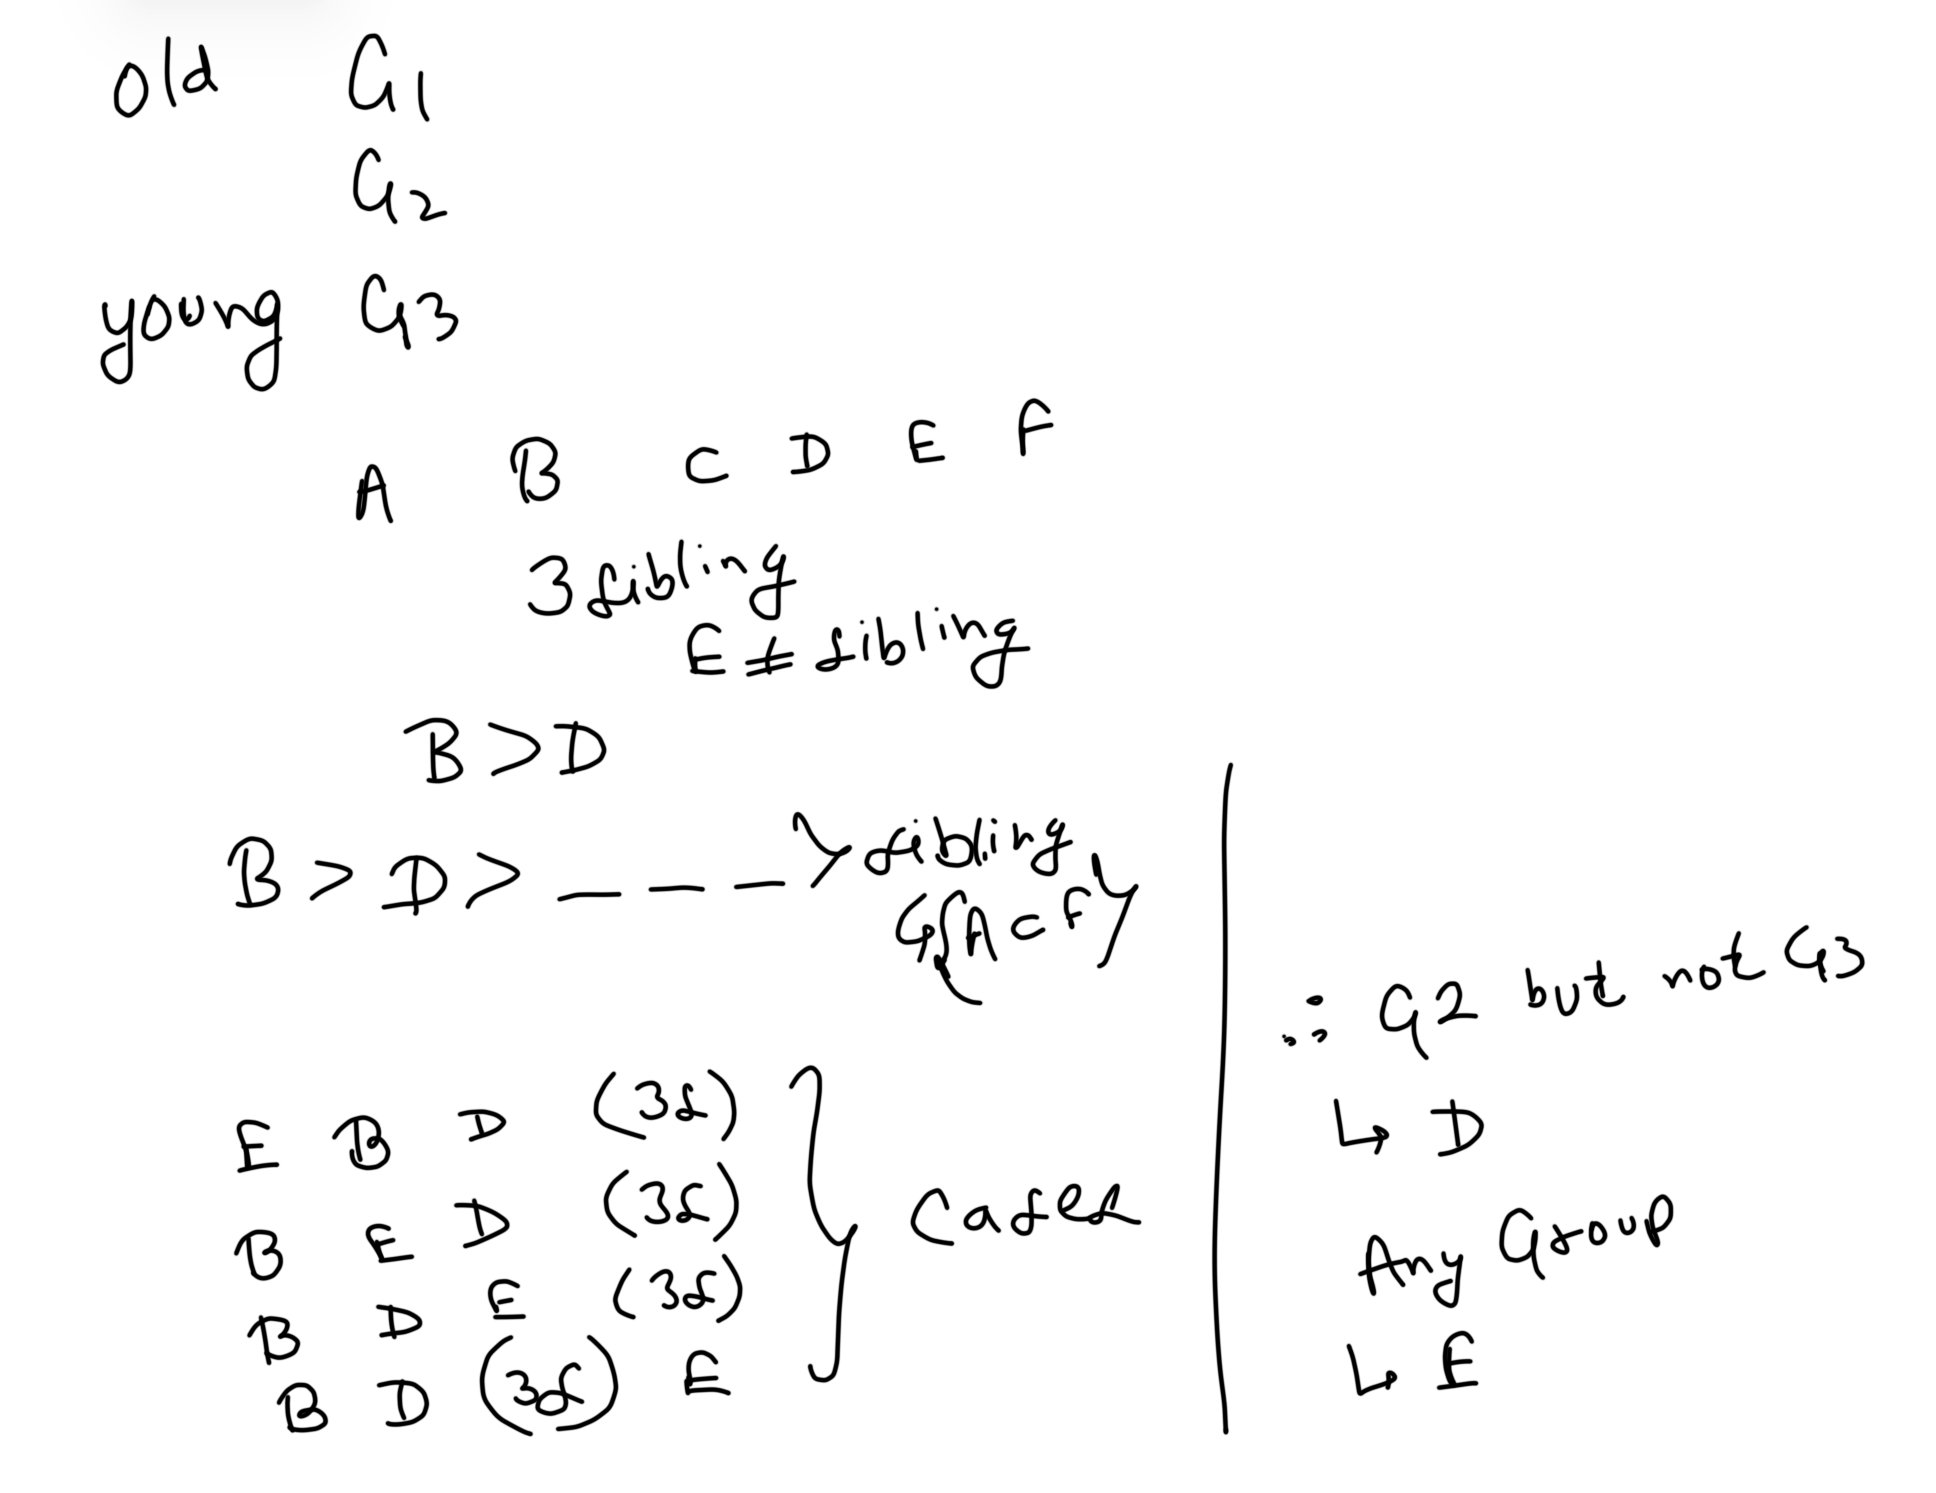 old G1
G2
young G3
A B C D E F
3 sibling
E ≠ sibling
B > D
B > D > _ _ _ } sibling
{A C F}
E B D (3s)
B E D (3s)
B D E (3s)
B D (3s) E
} Cases
∴ G2 but not G3
↳ D
Any Group
↳ E